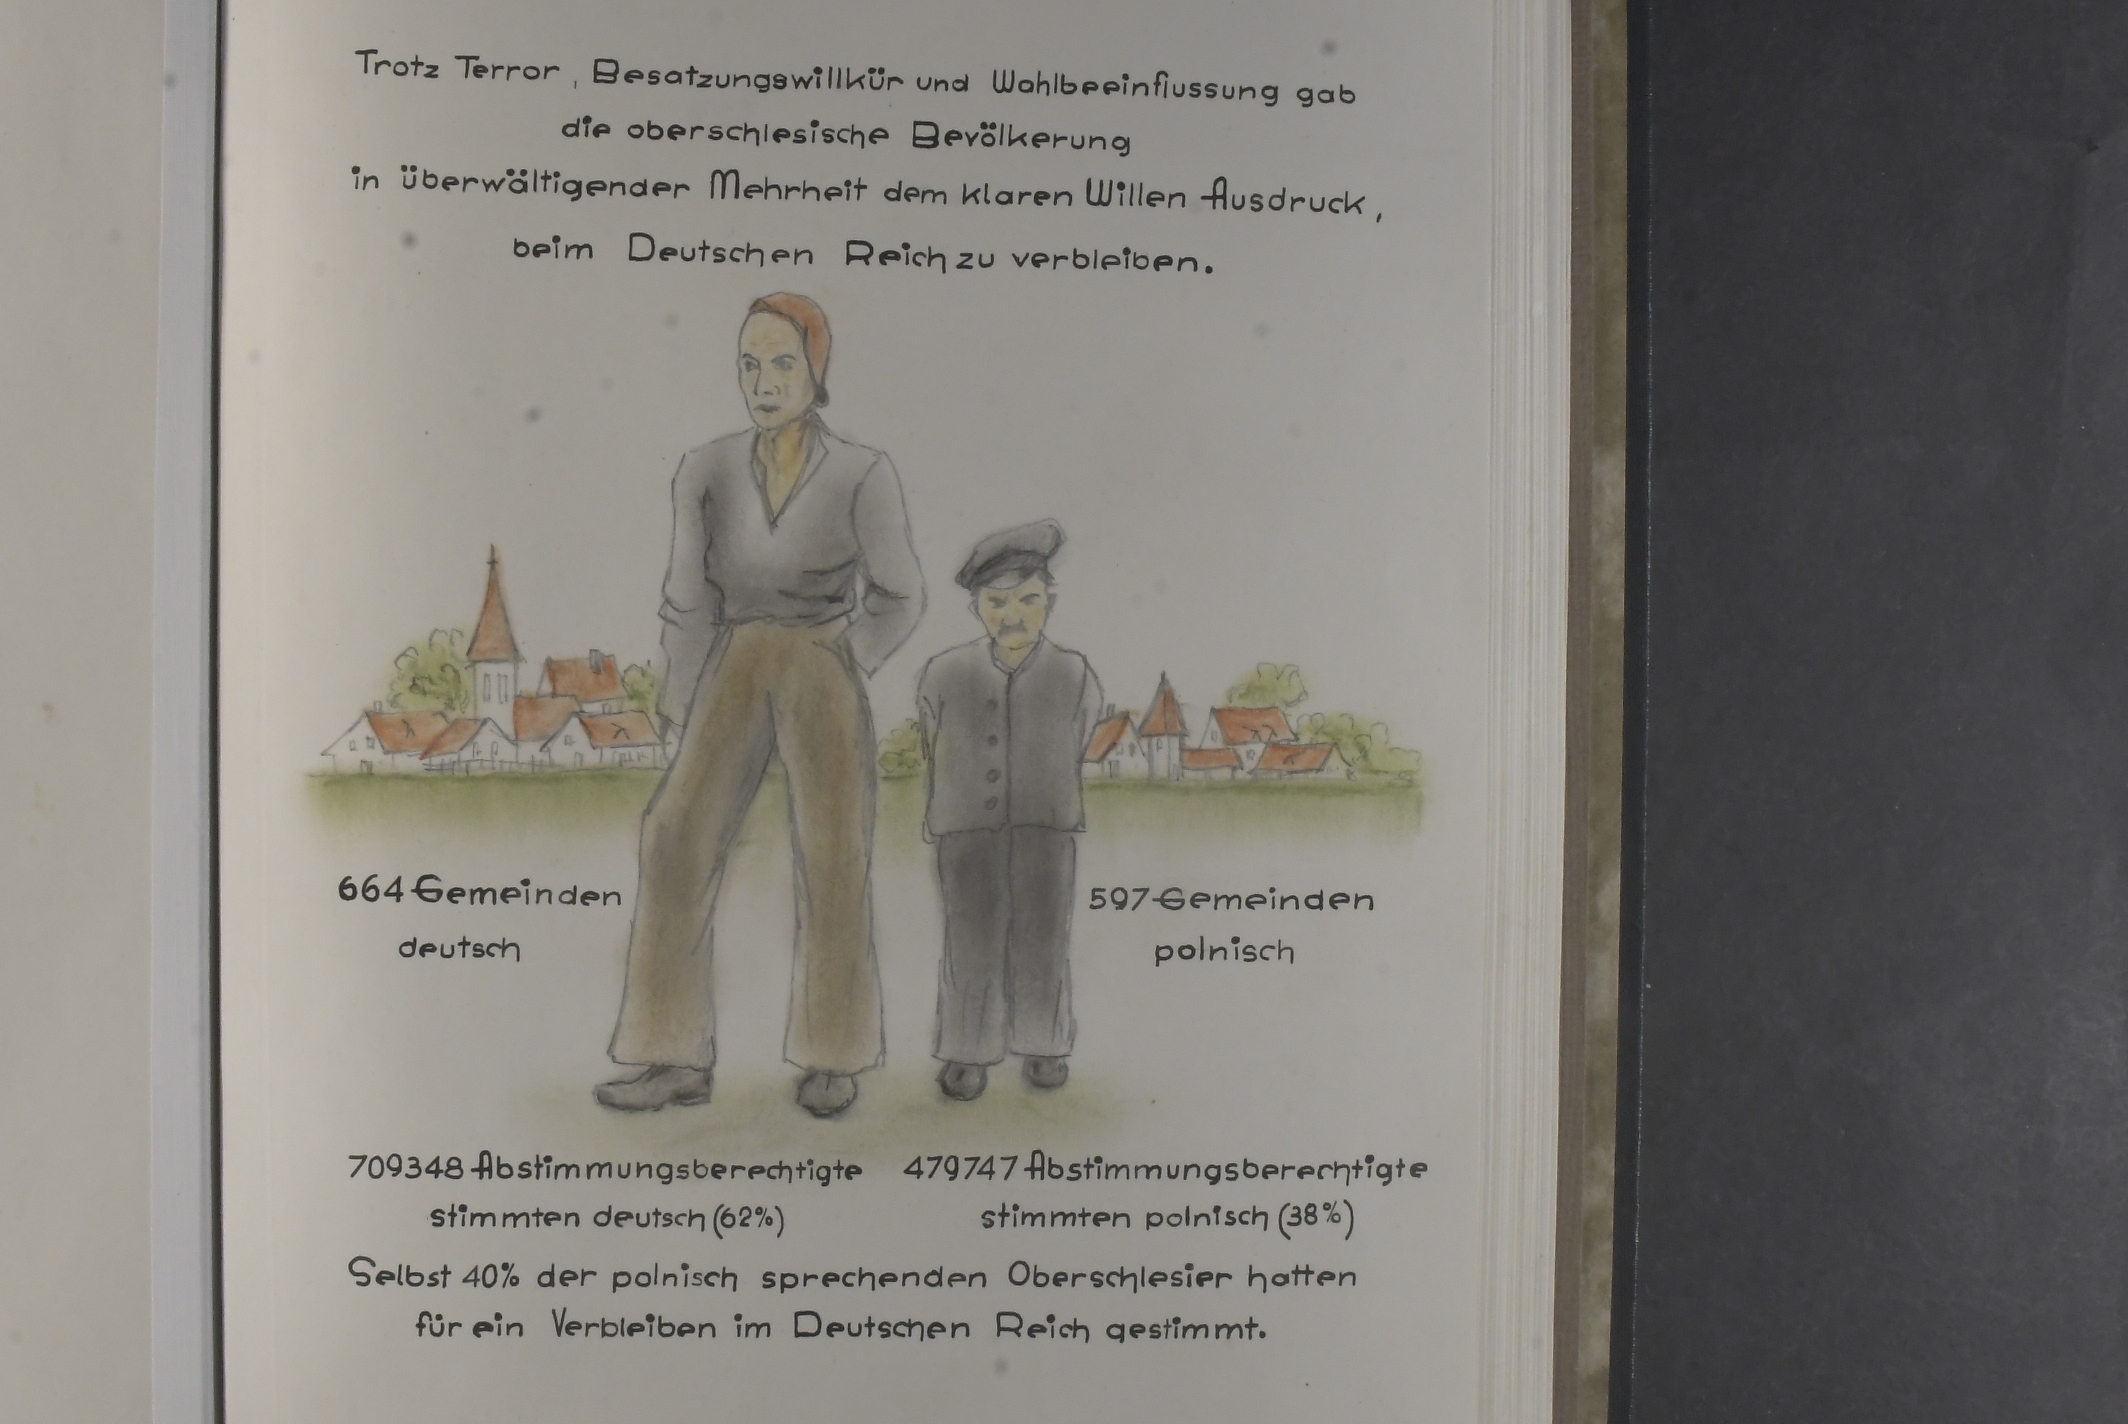 Trotz Terror, Besatzungswillkür und Wahlbeeinflussung gab
die oberschlesische Bevölkerung
in überwältigender Mehrheit dem klaren Willen Ausdruck,
beim Deutschen Reich zu verbleiben.
664 Gemeinden
deutsch
597 Gemeinden
polnisch
709348 Abstimmungsberechtigte
stimmten deutsch (62%)
479747 Abstimmungsberechtigte
stimmten polnisch (38%)
Selbst 40% der polnisch sprechenden Oberschlesier hatten
für ein Verbleiben im Deutschen Reich gestimmt.